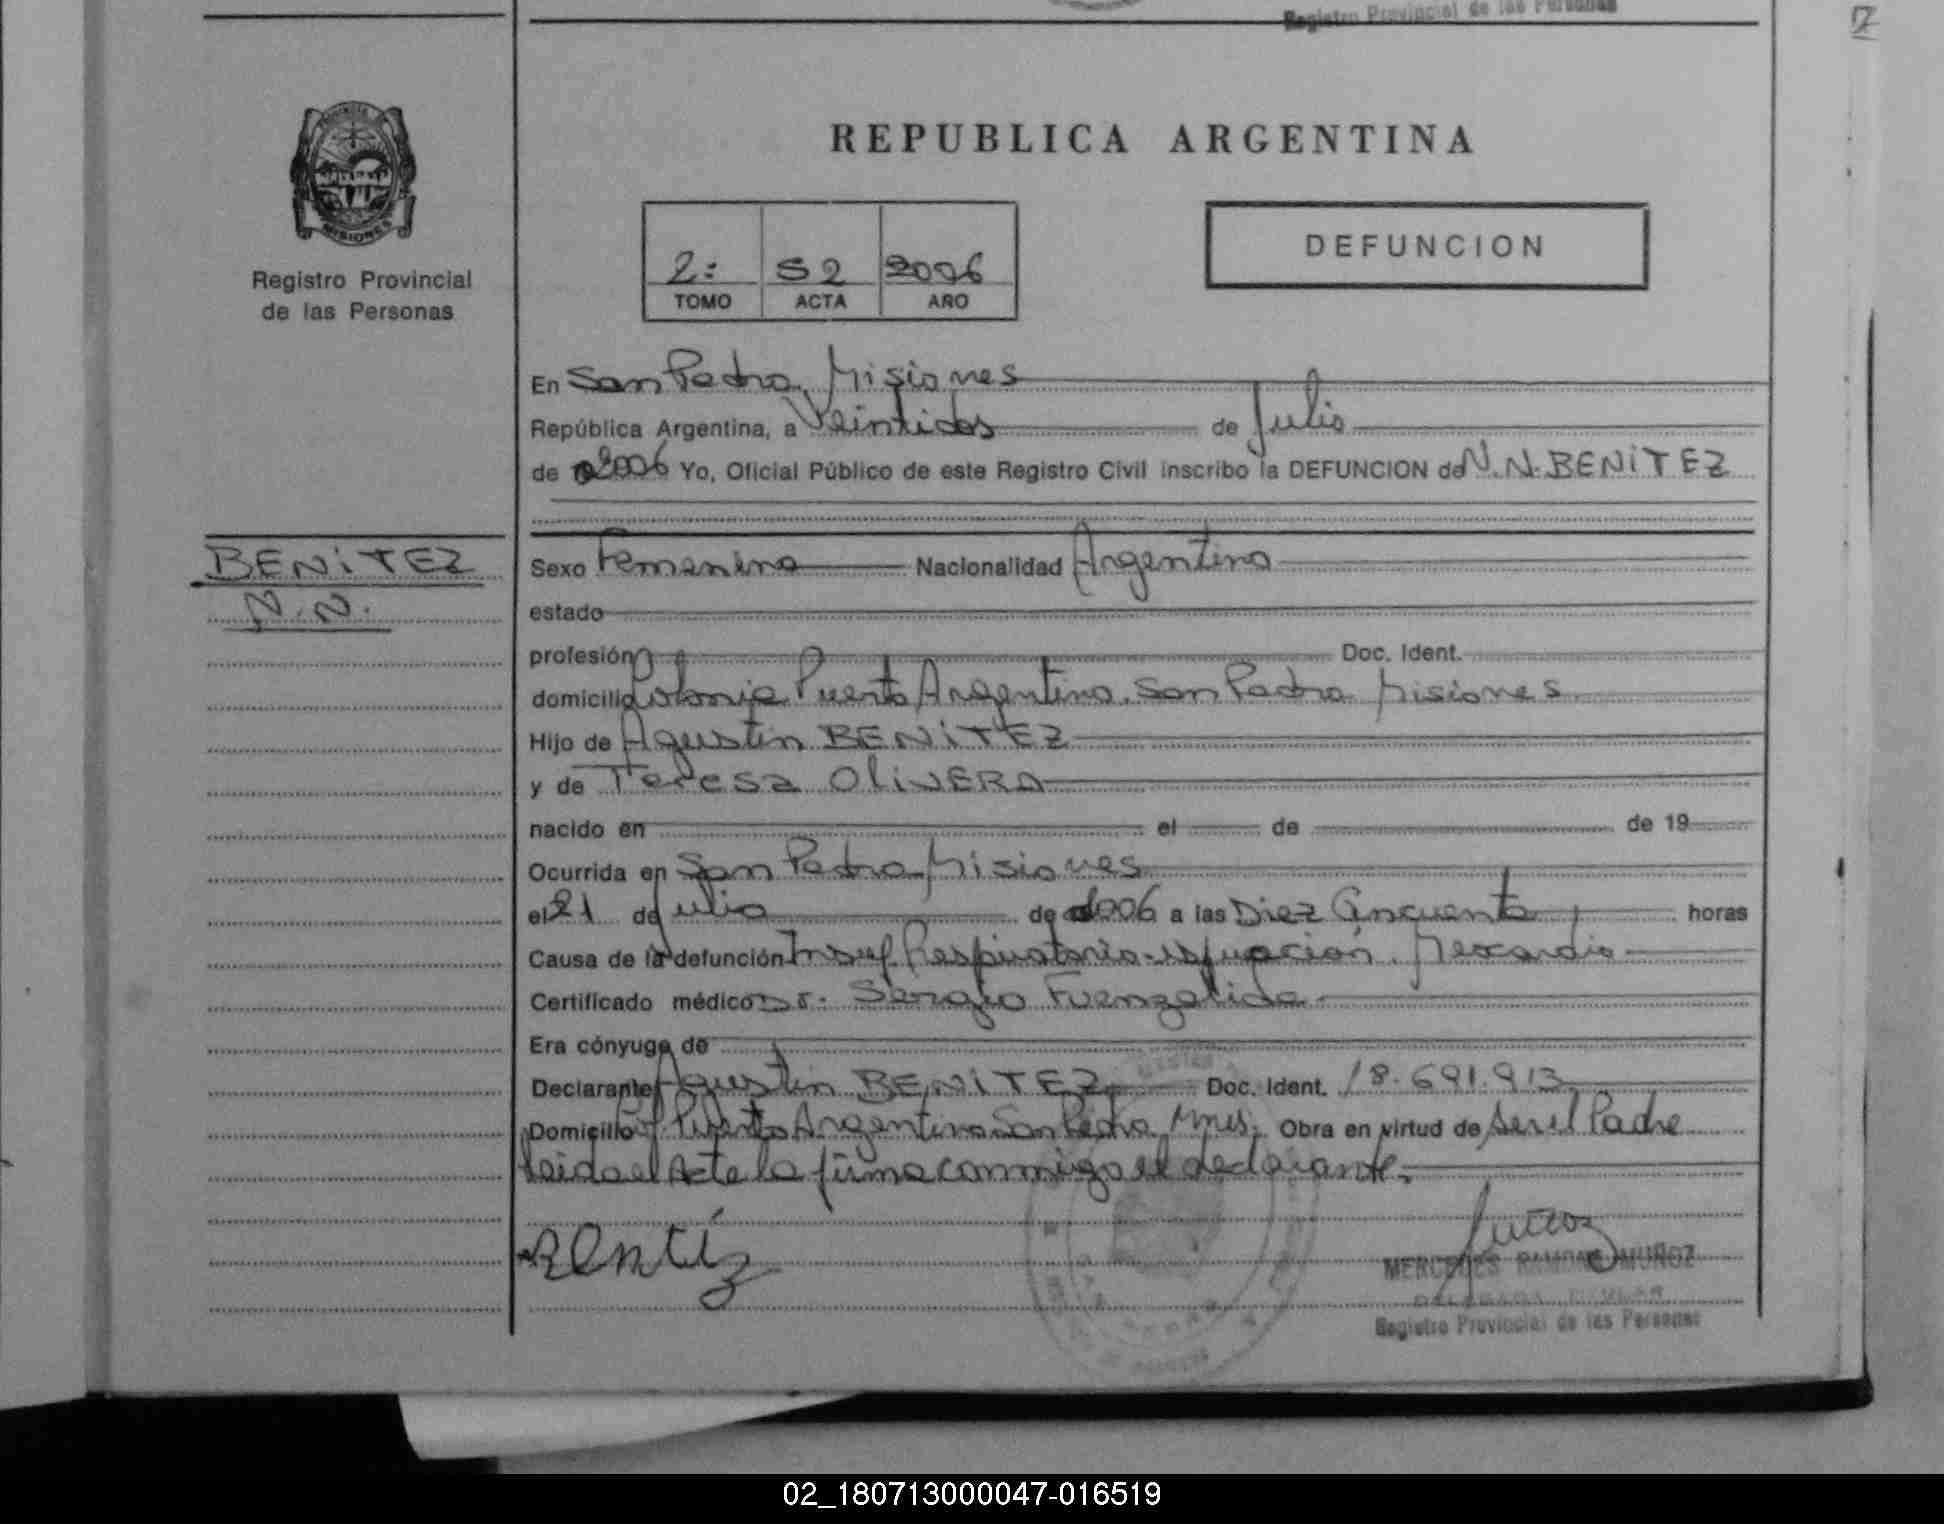 Registro Provincial de las Personas
REPUBLICA ARGENTINA
MISIONES
Registro Provincial
de las Personas
2: S2 2006
TOMO ACTA AÑO
DEFUNCION
En San Pedro, Misiones
República Argentina, a Veintidos de Julio
de 2006 Yo, Oficial Público de este Registro Civil inscribo la DEFUNCION de N.N. BENITEZ
BENITEZ
N.N.
Sexo Femenino Nacionalidad Argentina
estado
profesión Doc. Ident.
domicilio Colonia Puerto Argentino. San Pedro Misiones
Hijo de Agustin BENITEZ
y de Teresa OLIVERA
nacido en el de de 19
Ocurrida en San Pedro Misiones
el 21 de Julio de 2006 a las Diez Cincuenta horas
Causa de la defunción Insuf. Respiratoria
Certificado médico Dr. Sergio Fuenzalida
Era cónyuge de
Declarante Agustin BENITEZ Doc. Ident. 18.691.913
Domicilio Col Puerto Argentino San Pedro Mnes. Obra en virtud de ser el Padre
leida el Acta la firma conmigo el declarante.
MERCEDES RAMONA MUÑOZ
DELEGADA TITULAR
Registro Provincial de las Personas
02_180713000047-016519